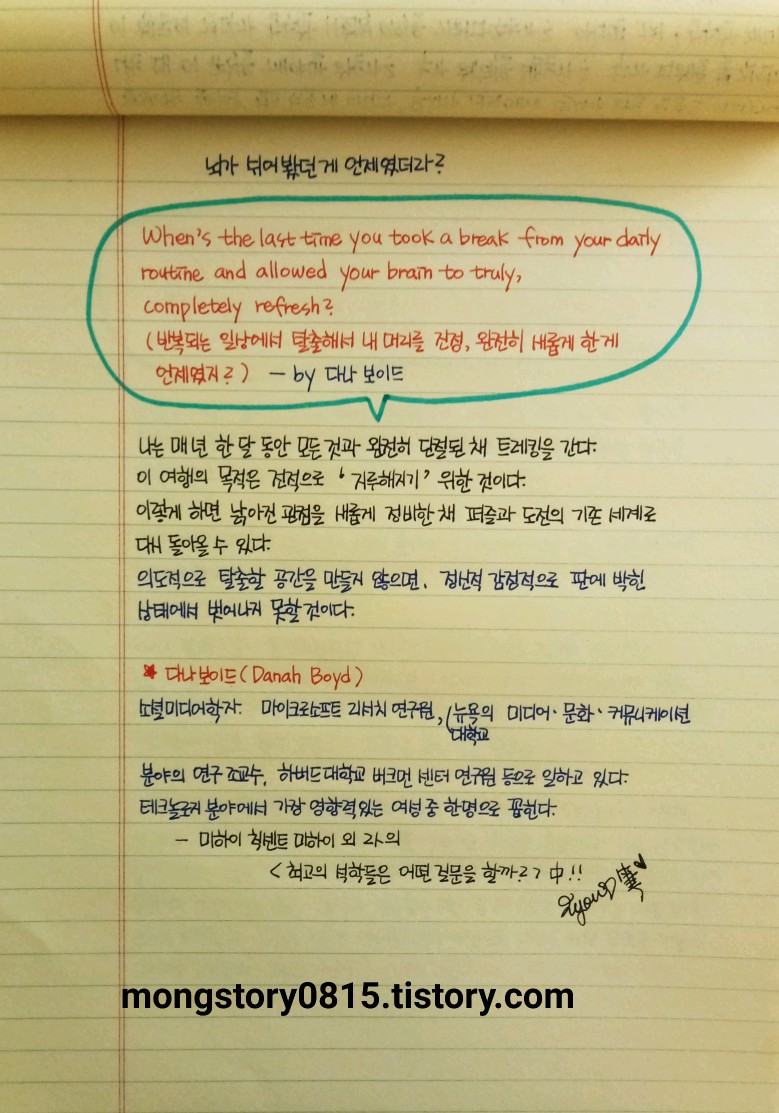 뇌가 쉬어봤던게 언제였더라?
When's the last time you took a break from your daily
routine and allowed your brain to truly,
completely refresh?
(반복되는 일상에서 탈출해서 내 머리를 진정, 완전히 새롭게 한게
언제였지?) - by 다나 보이드
나는 매년 한 달 동안 모든 것과 완전히 단절된 채 트레킹을 간다.
이 여행의 목적은 전적으로 '지루해지기' 위한 것이다.
이렇게 하면 낡아진 관점을 새롭게 정비한 채 퍼즐과 도전의 기존 세계로
다시 돌아올 수 있다.
의도적으로 탈출할 공간을 만들지 않으면, 정신적 감정적으로 판에 박힌
상태에서 벗어나지 못할것이다.
★ 다나보이드(Danah Boyd)
소셜미디어학자. 마이크로소프트 리서치 연구원, (뉴욕의 미디어·문화·커뮤니케이션
대학교
분야의 연구 조교수, 하버드대학교 버크먼 센터 연구원 등으로 일하고 있다.
테크놀로지 분야에서 가장 영향력있는 여성 중 한명으로 꼽힌다.
- 미하이 칙센트 미하이 외 2人의
<최고의 석학들은 어떤 질문을 할까?> 中!!
mongstory0815.tistory.com